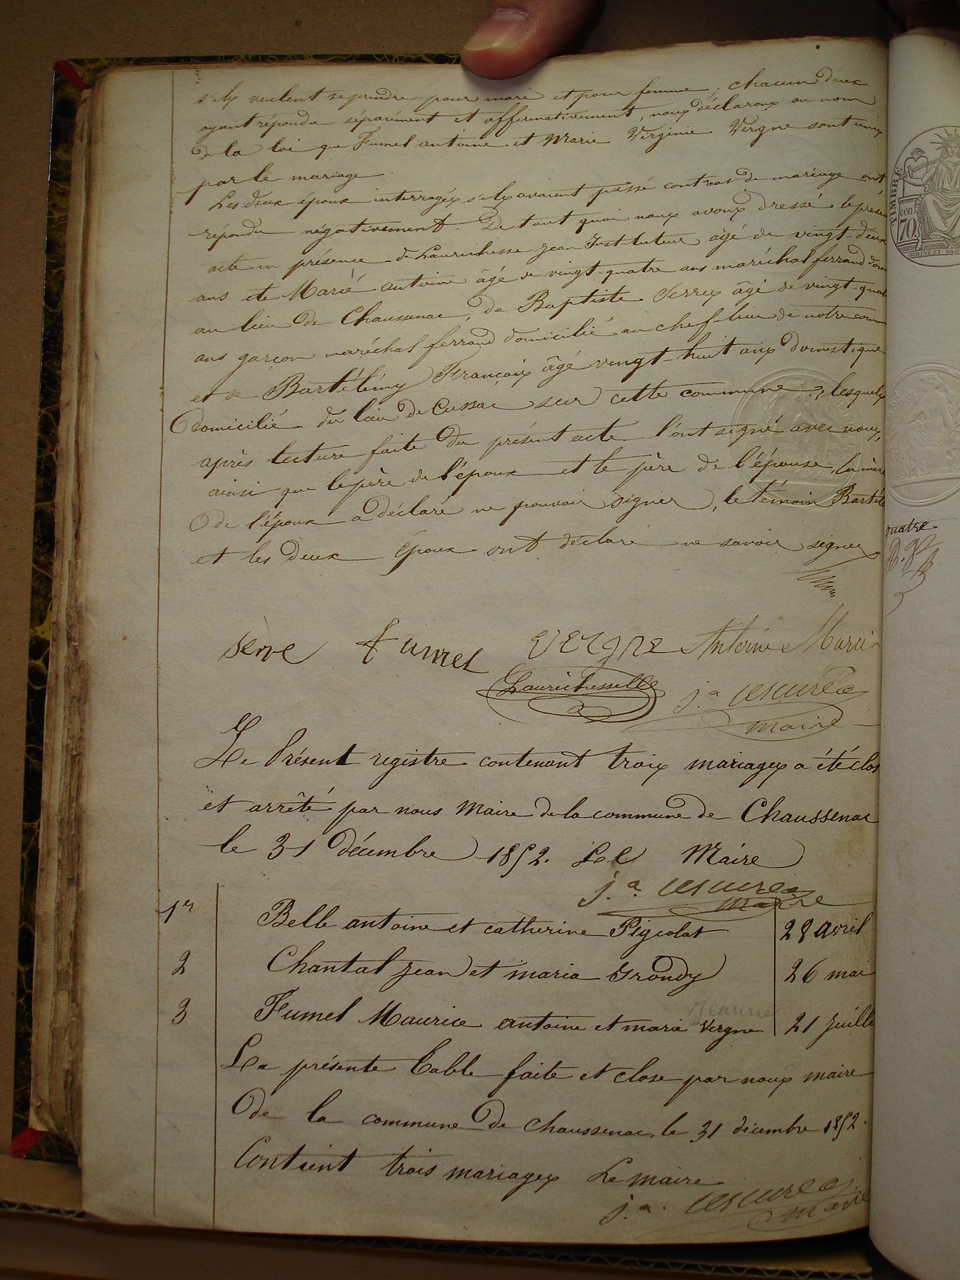 s'ils veulent se prendre pour mari et pour femme, chacun deux
ayant répondu séparément et affirmativement, nous déclarons au nom
De la loi que Fumel antoine et Marie Virginie Vergne sont unis
par le mariage.
Les deux époux interrogés s'ils avaient passé contrat de mariage ont
répondu négativement. De tout quoi nous avons dressé le présent
acte en présence de Laurichesse jean Instituteur âgé de vingt deux
ans et de Marié antoine âgé de vingt-quatre ans maréchal ferrand dom
au lieu de Chaussenac, de Baptiste Serre âgé de vingt quat
ans garçon maréchal ferrand domicilié au chef lieu de notre comm
et de Bartélémy François âgé vingt huit ans domestique
Domicilié du lieu de Cussac sur cette commune, lesquels
après lecture faite du présent acte l'ont signé avec nous,
ainsi que le père de l'époux et le père de l'épouse, la mère
de l'époux a déclaré ne pouvoir signer, le témoin Bartél
et les deux époux ont déclaré ne savoir signer
serre fumel VERGNE Antoine Marié
Laurichesse
j.a lescure
maire
Le Présent registre contenant trois mariages a été clos
et arrêté par nous Maire de la commune de Chaussenac
le 31 décembre 1852. Le Maire
j.a lescure
maire
1er Belle antoine et catherine Pigeolat 28 avril
2 Chantal jean et maria 26 mai
3 Fumel Maurice antoine et marie Vergne 21 juille
Jeanne
La présente table faite et close par nous maire
De la commune de chaussenac le 31 décembre 1852.
Contient trois mariages Le maire
j.a. lescure
maire
TIMBRE
70
quatre